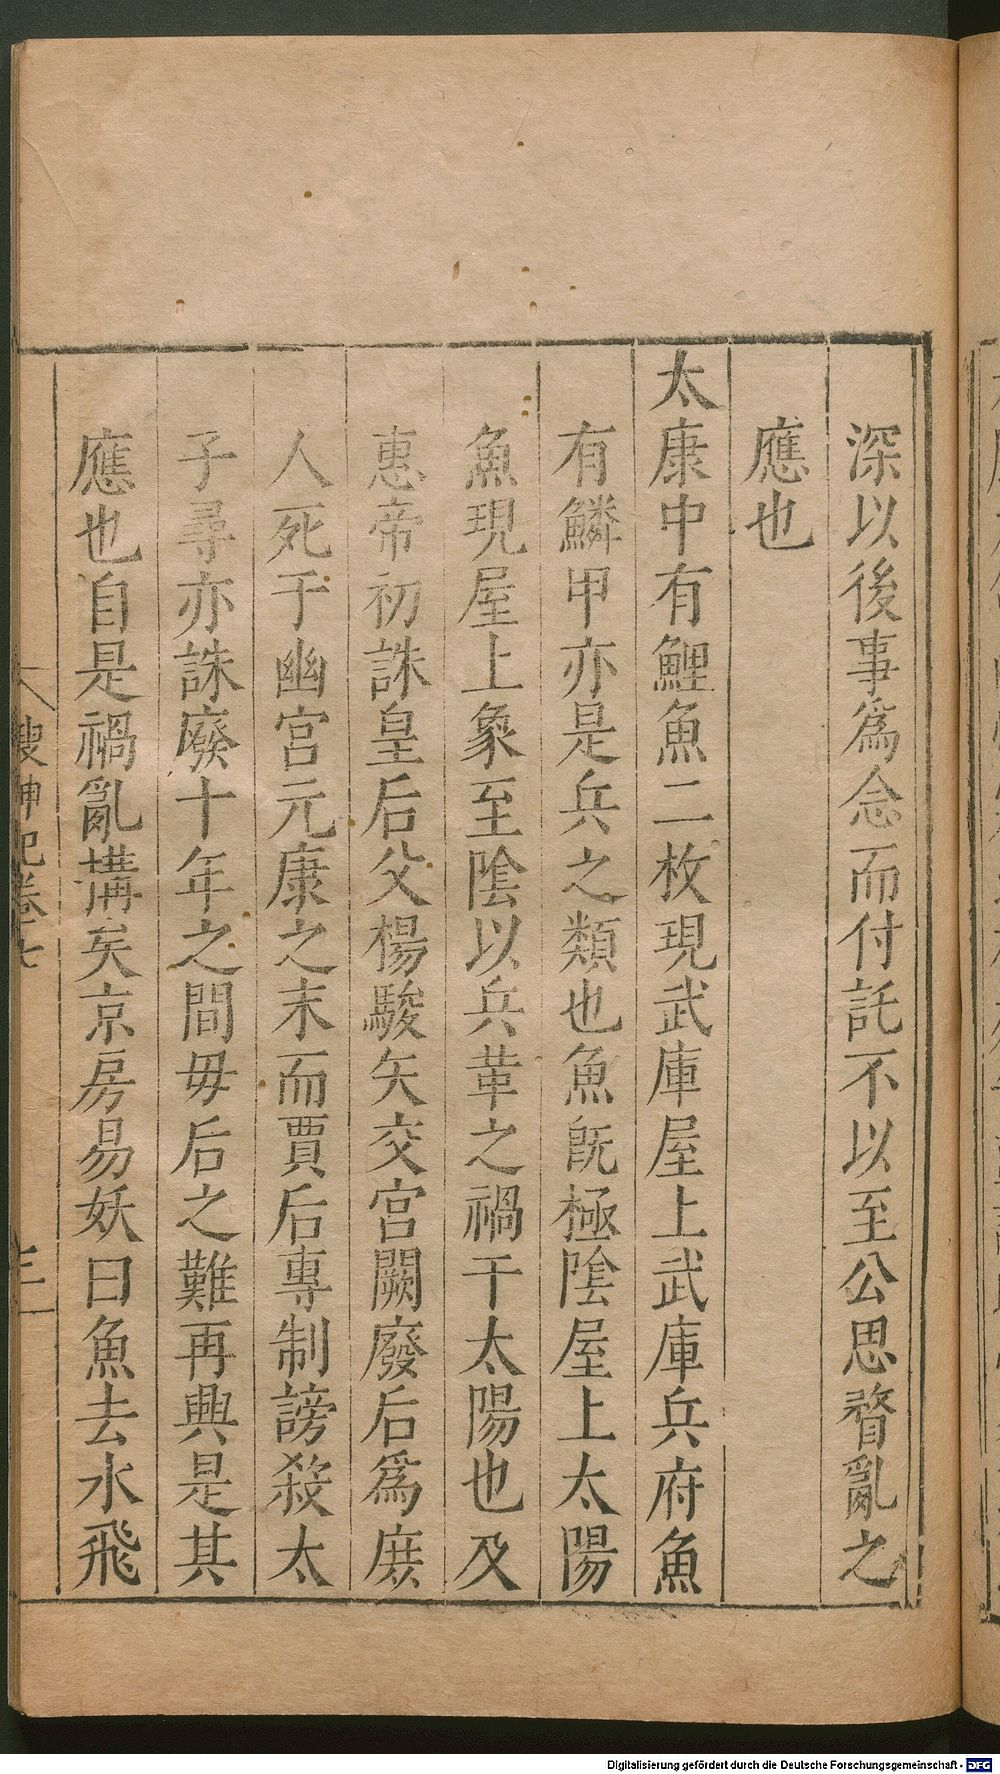 深以後事爲念而付託不以至公思瞀亂之
應也
太康中有鯉魚二枚現武庫屋上武庫兵府魚
有鱗甲亦是兵之類也魚旣極陰屋上太陽
魚現屋上象至陰以兵革之禍干太陽也及
惠帝初誅皇后父楊駿矢交宮闕廢后爲庶
人死于幽宮元康之末而賈后專制謗殺太
子尋亦誅廢十年之間毋后之難再興是其
應也自是禍亂搆矣京房易妖曰魚去水飛
搜神記卷七
三
Digitalisierung gefördert durch die Deutsche Forschungsgemeinschaft - DFG